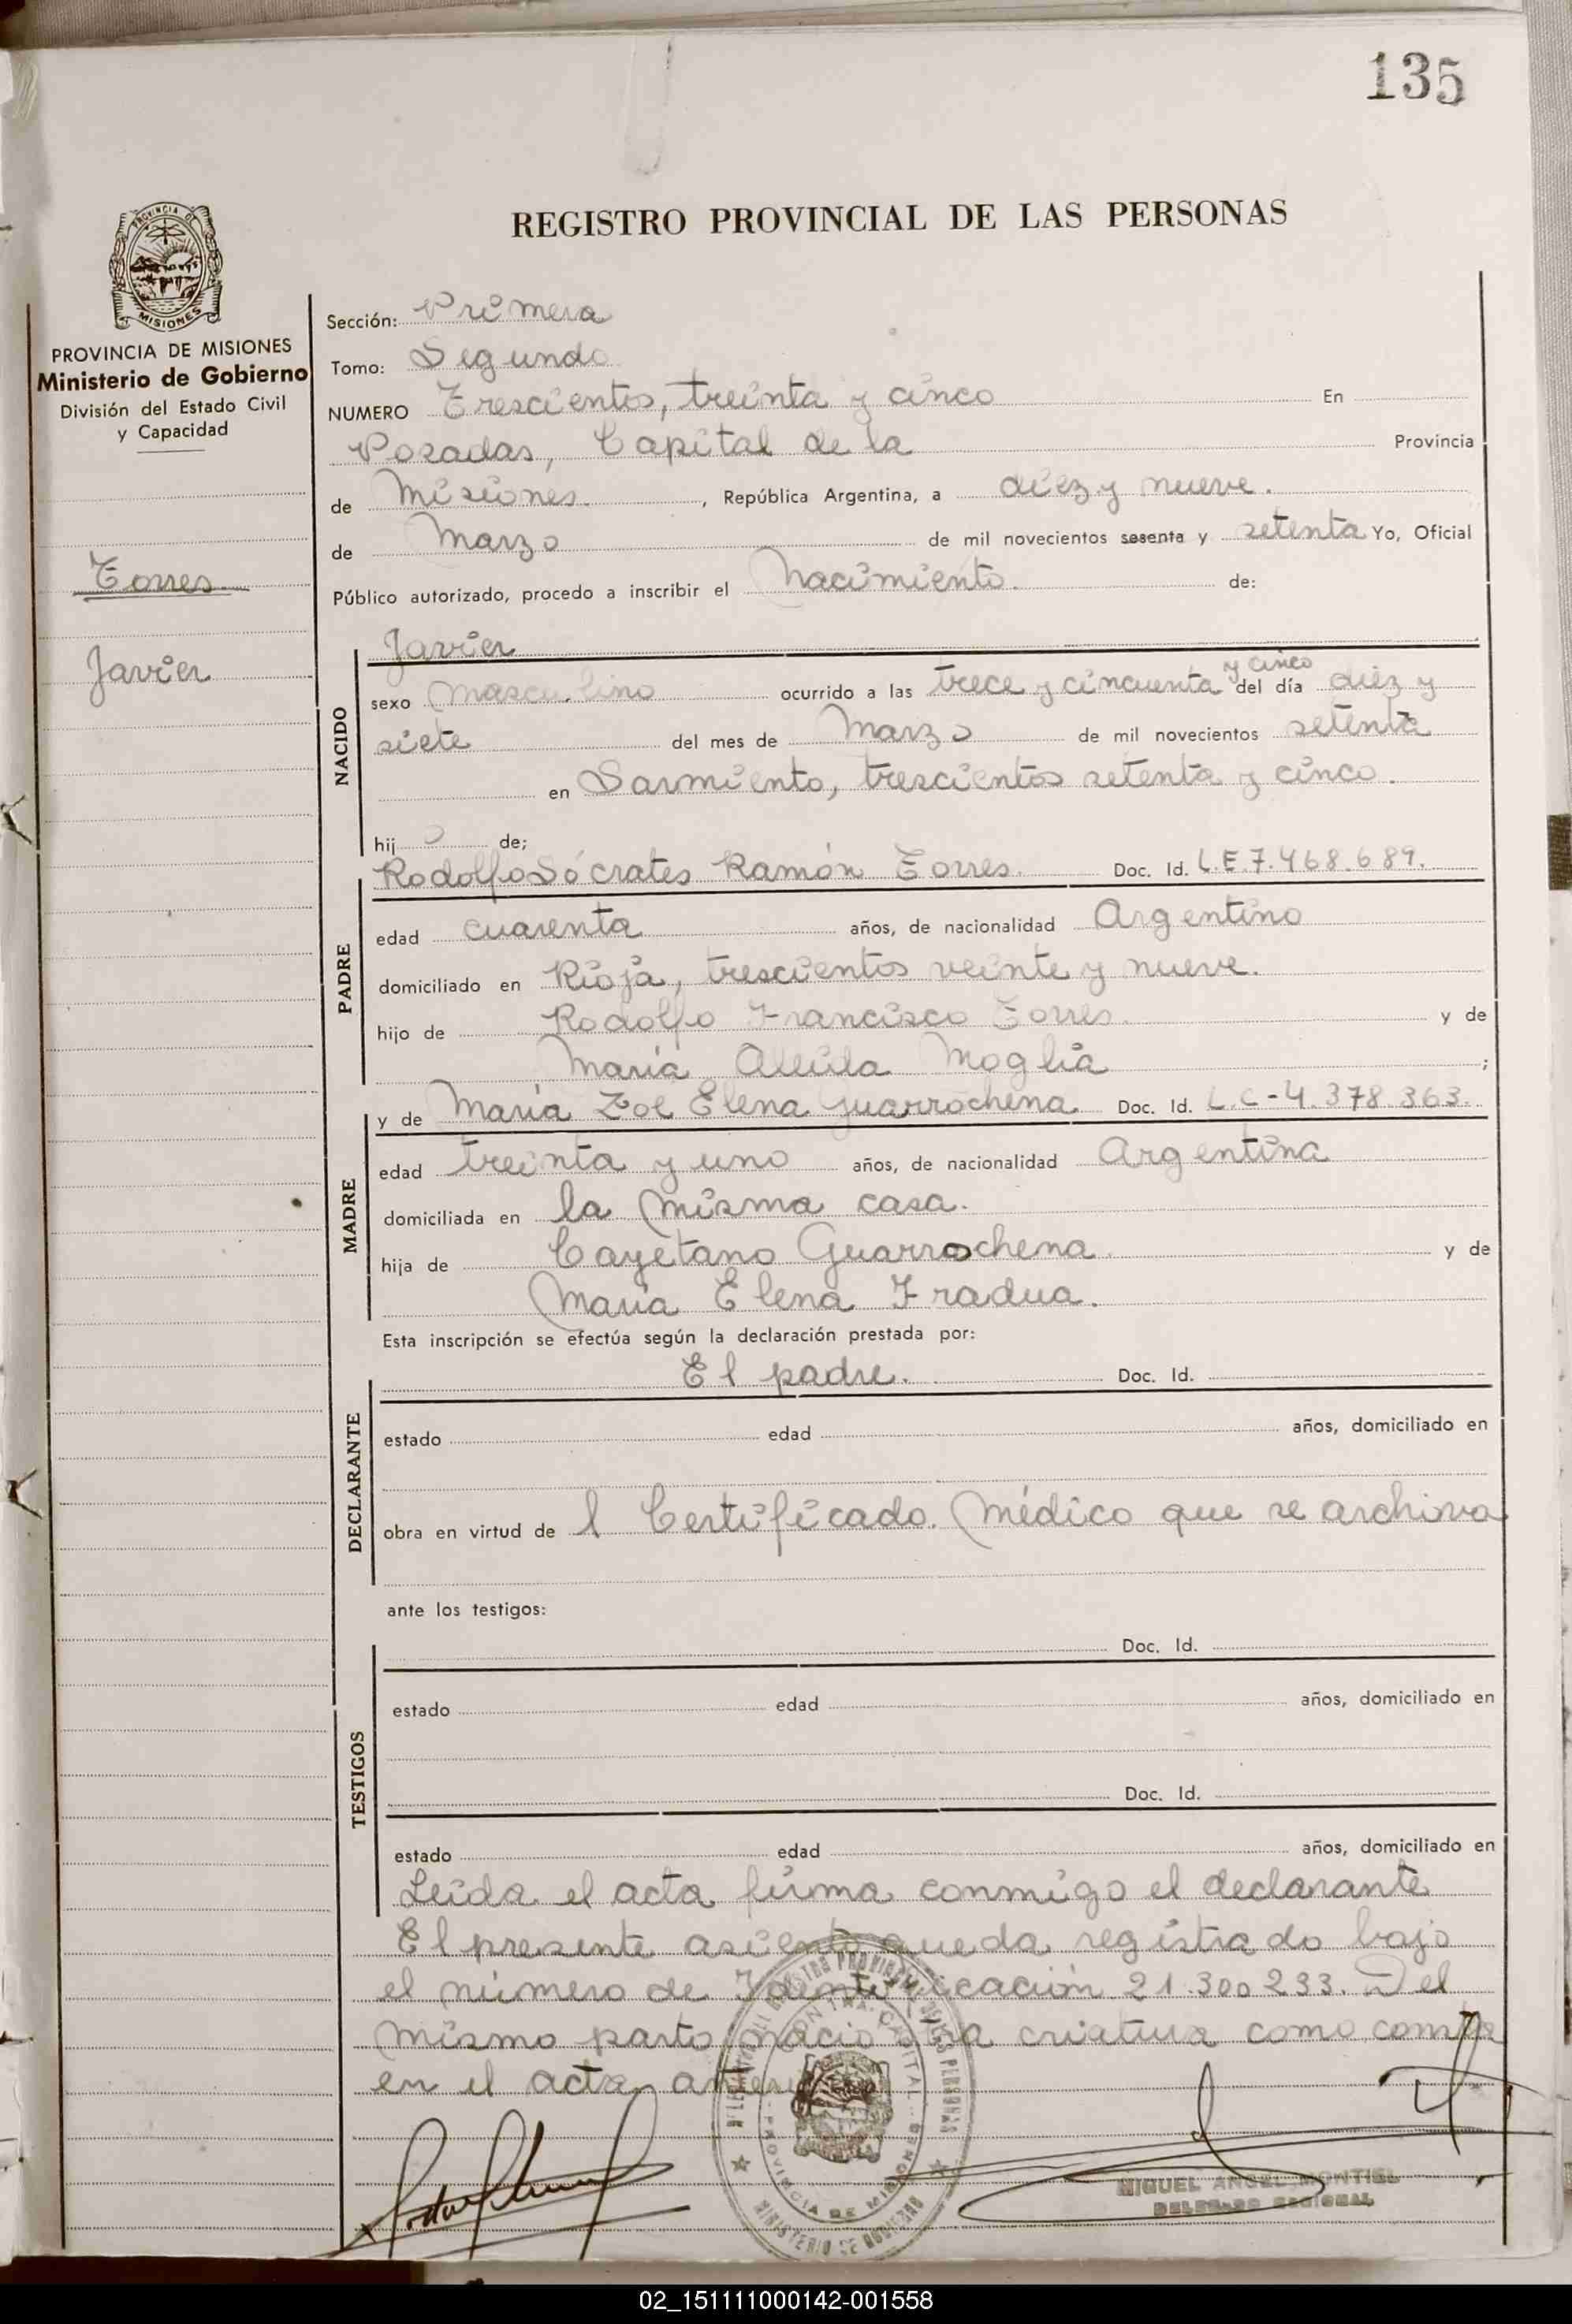 135
REGISTRO PROVINCIAL DE LAS PERSONAS
MISIONES
PROVINCIA DE MISIONES
Ministerio de Gobierno
División del Estado Civil
y Capacidad
Torres
Javier
Sección: Primera
Tomo: Segundo
NUMERO Trescientos, treinta y cinco En
Posadas, Capital de la Provincia
de Misiones. , República Argentina, a diez y nueve.
de Marzo de mil novecientos sesenta y setenta Yo, Oficial
Público autorizado, procedo a inscribir el Nacimiento. de:
NACIDO
Javier
sexo Masculino ocurrido a las trece y cincuenta y cinco del día diez y
siete del mes de Marzo de mil novecientos setenta
en Sarmiento, trescientos setenta y cinco.
hij o de;
PADRE
Rodolfo Sócrates Ramón Torres. Doc. Id. L.E.7.468.689.
edad cuarenta años, de nacionalidad Argentino
domiciliado en Rioja, trescientos veinte y nueve.
hijo de Rodolfo Francisco Torres. y de
María Moglia ;
MADRE
y de María Zoe Elena Guarrochena Doc. Id. L.C-4.378.363.
edad treinta y uno años, de nacionalidad Argentina
domiciliada en la misma casa.
hija de Cayetano Guarrochena y de
María Elena Fradua.
Esta inscripción se efectúa según la declaración prestada por:
DECLARANTE
El padre. Doc. Id.
estado edad años, domiciliado en
obra en virtud de l Certificado. Médico que se archiva
ante los testigos:
TESTIGOS
Doc. Id.
estado edad años, domiciliado en
Doc. Id.
estado edad años, domiciliado en
Leída el acta firma conmigo el declarante
El presente asiento queda registrado bajo
el número de Identificación 21.300.233. Del
mismo parto nació otra criatura como consta
en el acta anterior
MIGUEL ANGEL MONTIEL
DELEGADO REGIONAL
02_151111000142-001558